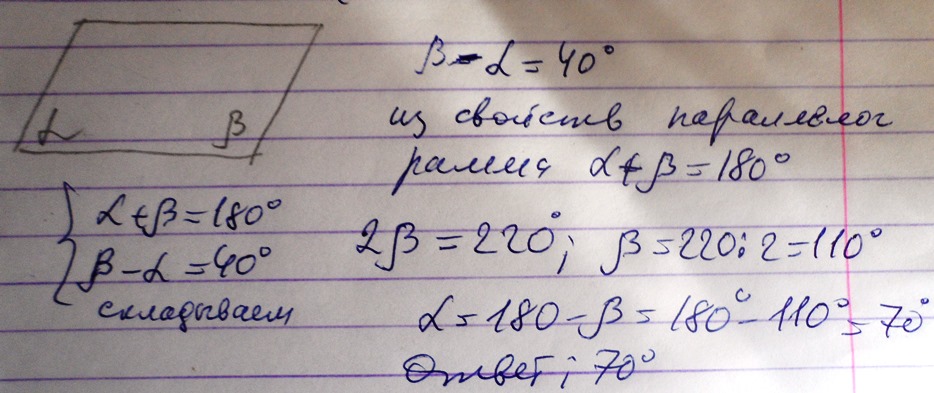 α β
β - α = 40°
из свойств параллелог
рамма α + β = 180°
α + β = 180°
β - α = 40°
складываем
2β = 220°; β = 220 : 2 = 110°
α = 180 - β = 180° - 110° = 70°
Ответ; 70°